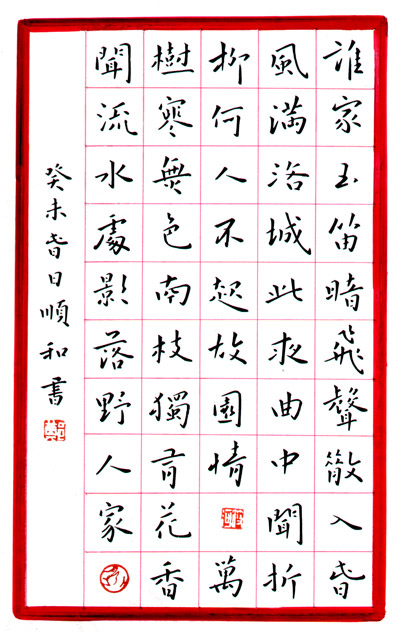 誰家玉笛暗飛聲散入春
風滿洛城此夜曲中聞折
柳何人不起故園情萬
樹寒無色南枝獨有花香
聞流水處影落野人家
癸未春日順和書